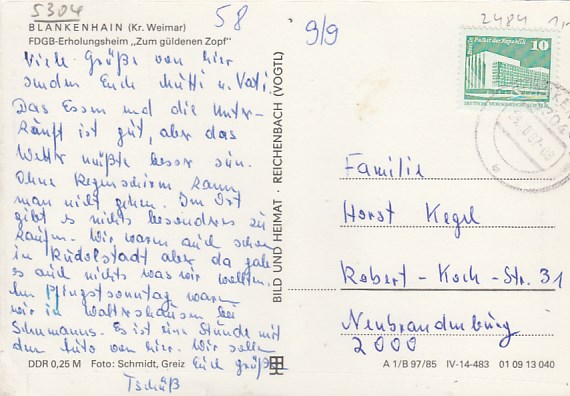 5304
58
9/9
2484
BLANKENHAIN (Kr. Weimar)
FDGB-Erholungsheim „Zum güldenen Zopf"
Viele Grüße von hier
senden Euch Mutti u. Vati.
Das Essen und die Unter-
künft ist gut, aber das
Wetter müßte besser sein.
Ohne Regenschirm kann
man nicht gehen. Im Ort
gibt es nichts besonderes zu
kaufen. Wir waren auch schon
in Rudolstadt aber da gab
es auch nichts was wir wollten.
Am Pfingstsonntag waren
wir in Waltershausen bei
Schumanns. Es ist eine Stunde mit
dem Auto von hier. Wir sollen
Euch grüßen
Tschüß
DDR 0,25 M Foto: Schmidt, Greiz
BILD UND HEIMAT · REICHENBACH (VOGTL)
Palast der Republik
10
DEUTSCHE DEMOKRATISCHE REPUBLIK
Familie
Horst Kegel
Robert-Koch-Str. 31
Neubrandenburg
2000
A 1/B 97/85 IV-14-483 01 09 13 040